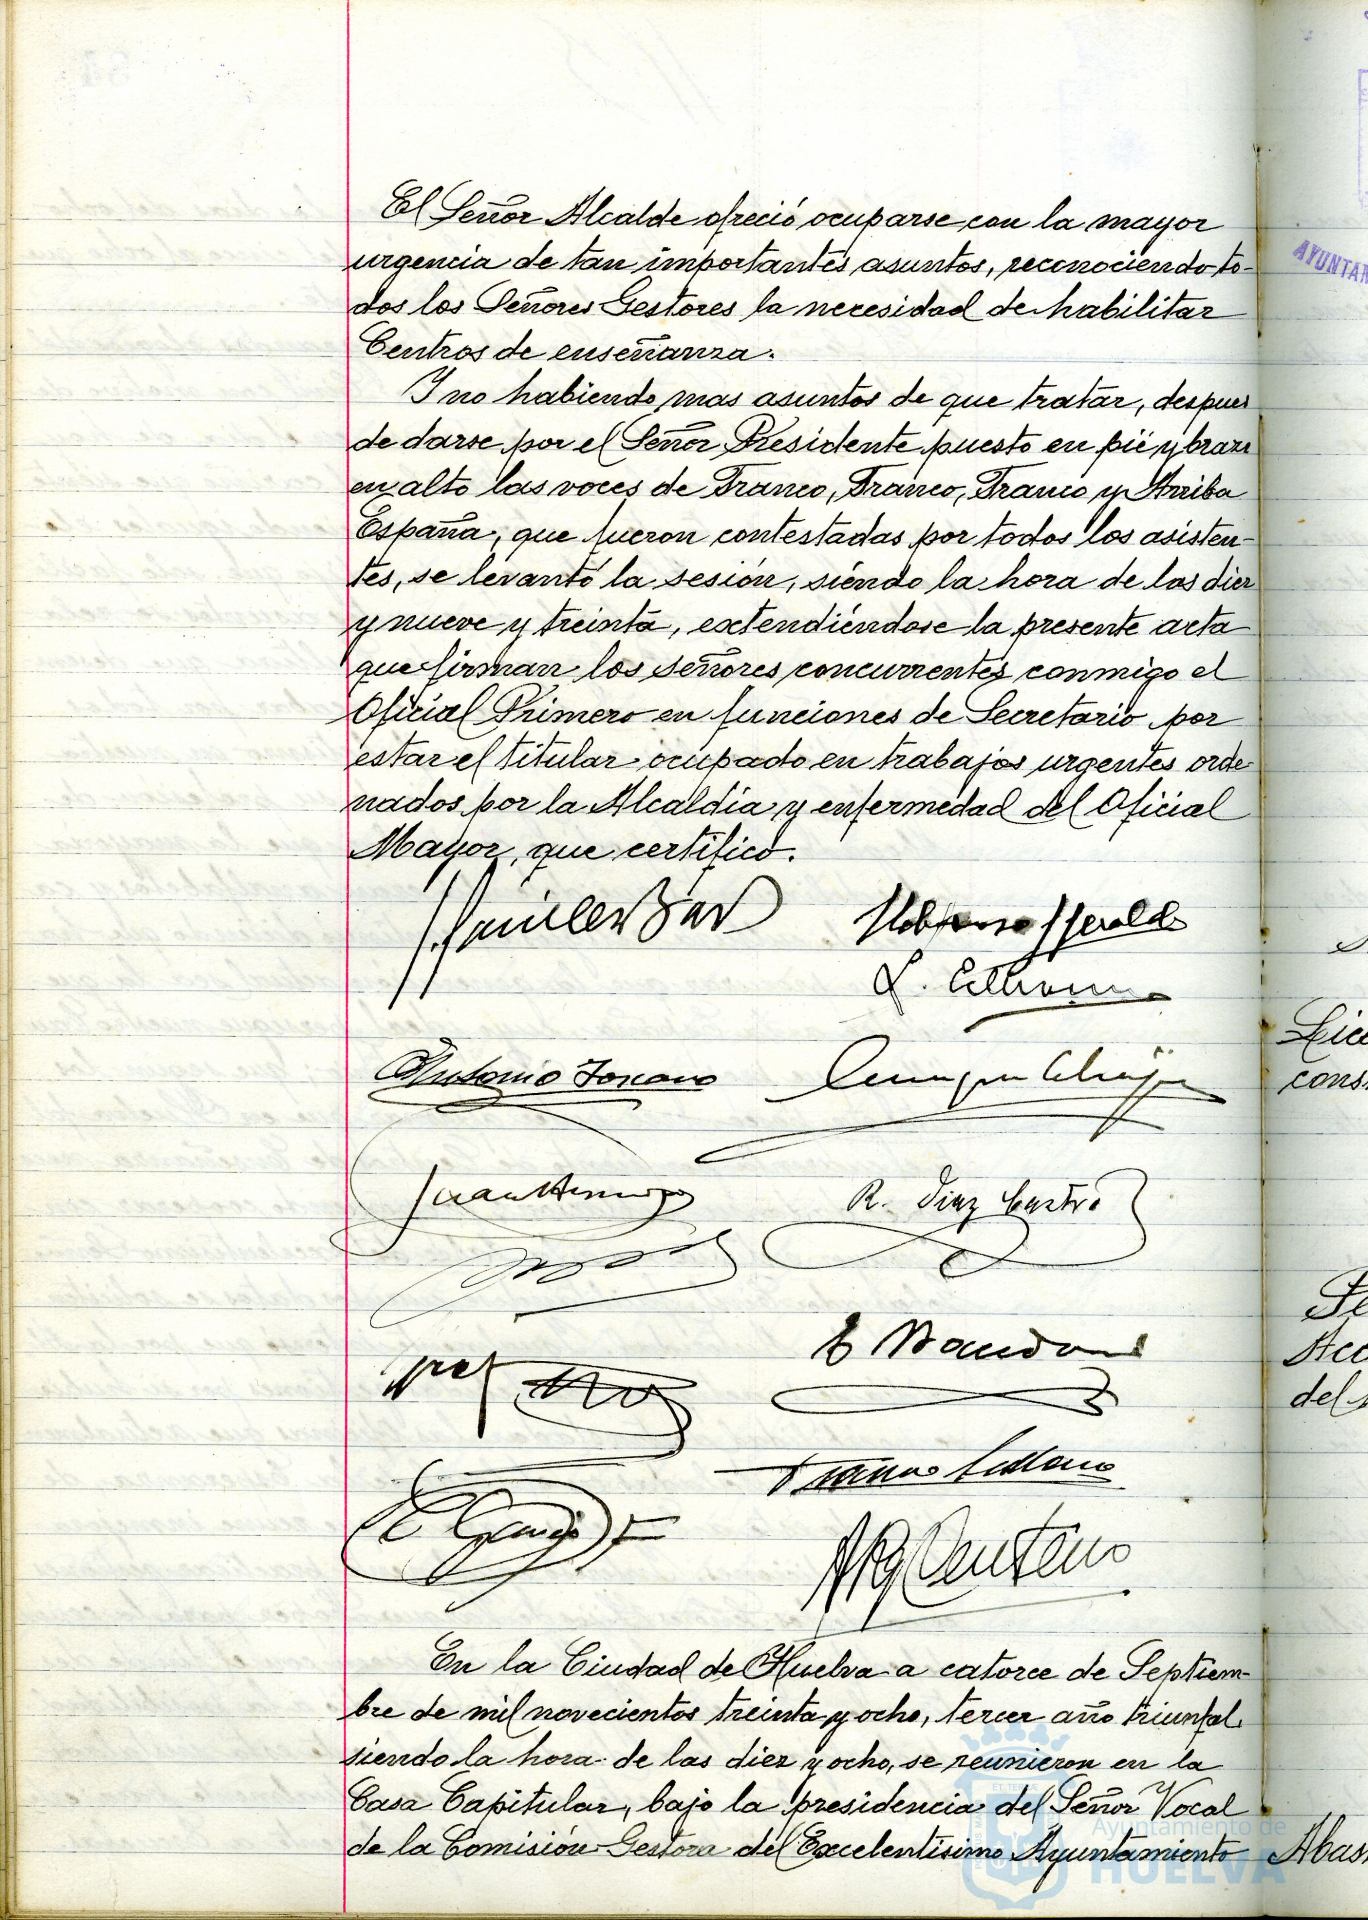 El Señor Alcalde ofreció ocuparse con la mayor
urgencia de tan importantes asuntos, reconociendo to-
dos los Señores Gestores la necesidad de habilitar
Centros de enseñanza.
Y no habiendo mas asuntos de que tratar, despues
de darse por el Señor Presidente puesto en pié y brazo
en alto las voces de Franco, Franco, Franco y Arriba
España, que fueron contestadas por todos los asisten-
tes, se levantó la sesión, siendo la hora de las diez
y nueve y treinta, extendiéndose la presente acta
que firman los señores concurrentes conmigo el
Oficial Primero en funciones de Secretario por
estar el titular ocupado en trabajos urgentes orde-
nados por la Alcaldía y enfermedad del Oficial
Mayor, que certifico.
R. Diaz Castro
En la Ciudad de Huelva a catorce de Septiem-
bre de mil novecientos treinta y ocho, tercer año triunfal
siendo la hora de las diez y ocho, se reunieron en la
Casa Capitular, bajo la presidencia del Señor Vocal
de la Comisión Gestora del Excelentísimo Ayuntamiento
Ayuntamiento de
HUELVA
AYUNTAM
Lice
cons
Acc
del
Abas